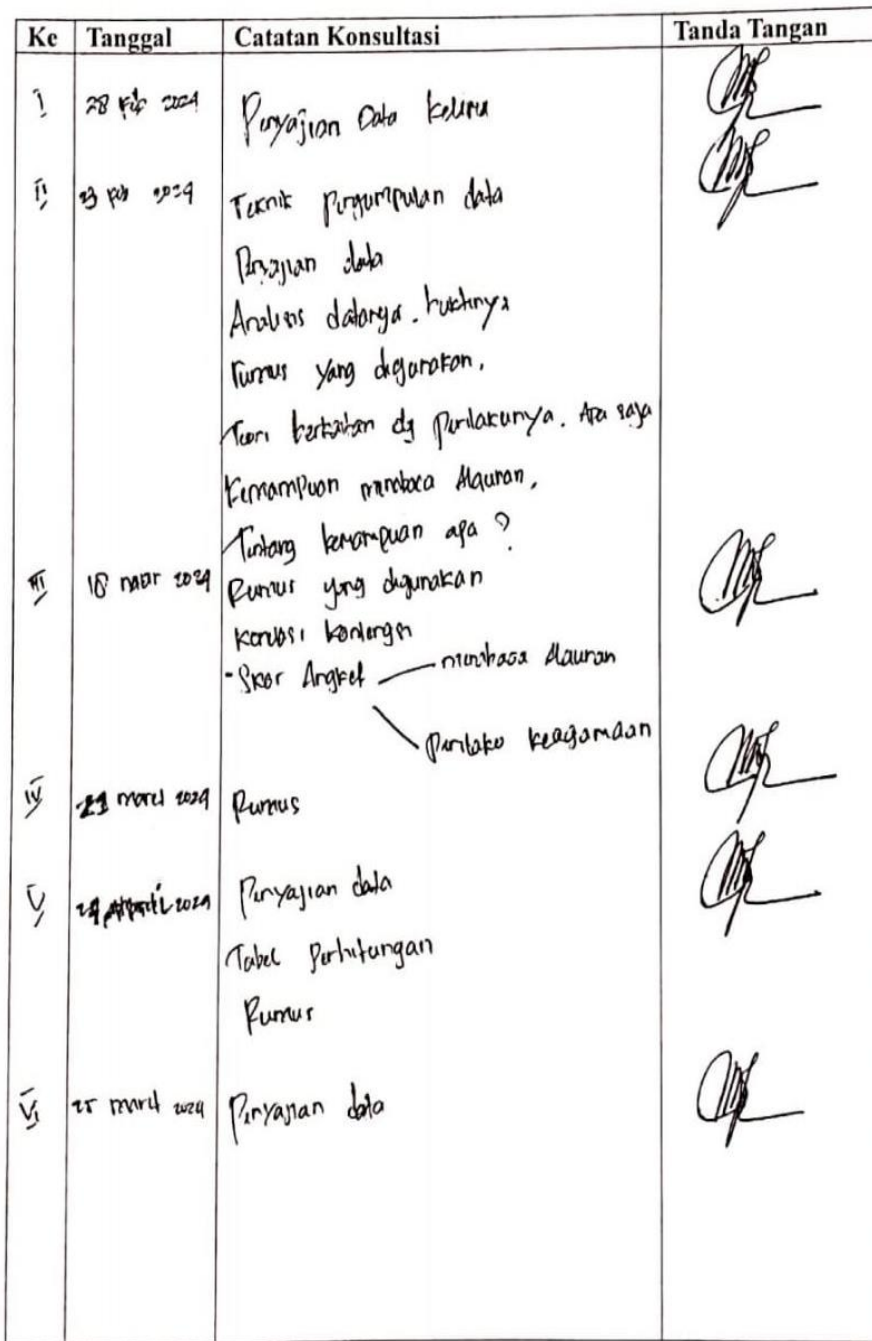 Ke Tanggal Catatan Konsultasi Tanda Tangan
I 28 Feb 2024 Penyajian Data keliru
II 23 Feb 2024 Teknik pengumpulan data
Penyajian data
Analisis datanya. buktinya
Rumus yang digunakan,
Teori berkaitan dg Perilakunya. Apa saja
Kemampuan membaca Alquran,
Tentang kemampuan apa ?
III 18 mar 2024 Rumus yang digunakan
korelasi kontengsi
- Skor Angket membaca Alquran
Perilaku keagamaan
IV 21 maret 2024 Rumus
V 2024 Penyajian data
Tabel Perhitungan
Rumus
VI 25 maret 2024 Penyajian data